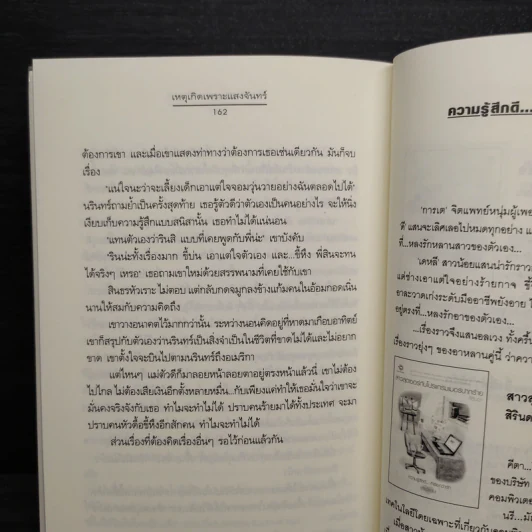 เหตุเกิดเพราะแสงจันทร์
162
ต้องการเขา และเมื่อเขาแสดงท่าทางว่าต้องการเธอเช่นเดียวกัน มันก็จบ
เรื่อง
'แน่ใจนะว่าจะเลี้ยงเด็กเอาแต่ใจจอมวุ่นวายอย่างฉันตลอดไปได้'
นรินทร์ถามย้ำเป็นครั้งสุดท้าย เธอรู้ดีว่าตัวเองเป็นคนอย่างไร จะให้นิ่ง
เงียบเก็บความรู้สึกแบบสนิสานั้น เธอทำไม่ได้แน่นอน
'แทนตัวเองว่ารินสิ แบบที่เคยพูดกับพี่น่ะ' เขาบังคับ
'รินน่ะทั้งเรื่องมาก ขี้บ่น เอาแต่ใจตัวเอง และ...ขี้หึง พี่สินจะทน
ได้จริงๆ เหรอ' เธอถามเขาใหม่ด้วยสรรพนามที่เคยใช้กับเขา
สินธรหัวเราะ ไม่ตอบ แต่กลับกดจมูกลงข้างแก้มคนในอ้อมกอดเนิ่น
นานให้สมกับความคิดถึง
เขาวางอนาคตไว้มากกว่านั้น ระหว่างนอนคิดอยู่ที่หาดมาเกือบอาทิตย์
เขาก็สรุปกับตัวเองว่านรินทร์เป็นสิ่งจำเป็นในชีวิตที่ขาดไม่ได้และไม่อยาก
ขาด เขาตั้งใจจะบินไปตามนรินทร์ถึงอเมริกา
แต่ไหนๆ แม่ตัวดีก็มาลอยหน้าลอยตาอยู่ตรงหน้าแล้วนี่ เขาไม่ต้อง
ไปไกล ไม่ต้องเสียเงินอีกตั้งหลายหมื่น...กับเพียงแค่ทำให้เธอมั่นใจว่าเขาจะ
มั่นคงจริงจังกับเธอ ทำไมจะทำไม่ได้ ปราบคนร้ายมาได้ทั้งประเทศ จะมา
ปราบคนหัวดื้อขี้หึงอีกสักคน ทำไมจะทำไม่ได้
ส่วนเรื่องที่ต้องคิดเรื่องอื่นๆ รอไว้ก่อนแล้วกัน
ความรู้สึกดี...
'การเต' จิตแพทย์หนุ่มผู้เพ
ดี แสนจะเลิศเลอไปหมดทุกอย่าง แ
ที่...หลงรักหลานสาวของตัวเอง...
'เดหลี' สาวน้อยแสนน่ารักราว
แต่ช่างเอาแต่ใจอย่างร้ายกาจ
อยู่ตรงที่...หลงรักอาของตัวเอง...
...เรื่องราวจึงแสนอลเวง ทั้งครึ้
เรื่องราวยุ่งๆ ของอาหลานคู่นี้ ว่าควา
คีตา...
ของบริษัท
คอมพิวเตอ
เทคโนโลยีโดยเฉพาะที่เกี่ยวกับ